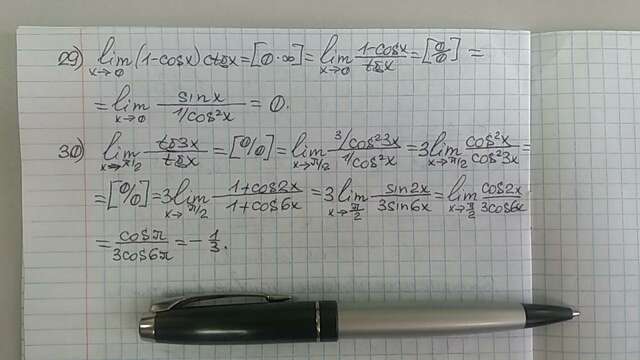 29) lim x→0 (1-cosx) ctgx = [0·∞] = lim x→0 (1-cosx)/(tgx) = [0/0] =
= lim x→0 (sinx)/(1/cos²x) = 0.
30) lim x→π/2 (tg3x)/(tgx) = [0/0] = lim x→π/2 (3/cos²3x)/(1/cos²x) = 3 lim x→π/2 (cos²x)/(cos²3x) =
= [0/0] = 3 lim x→π/2 (1+cos2x)/(1+cos6x) = 3 lim x→π/2 (sin2x)/(3sin6x) = lim x→π/2 (cos2x)/(3cos6x)
= (cosπ)/(3cos6π) = -1/3.